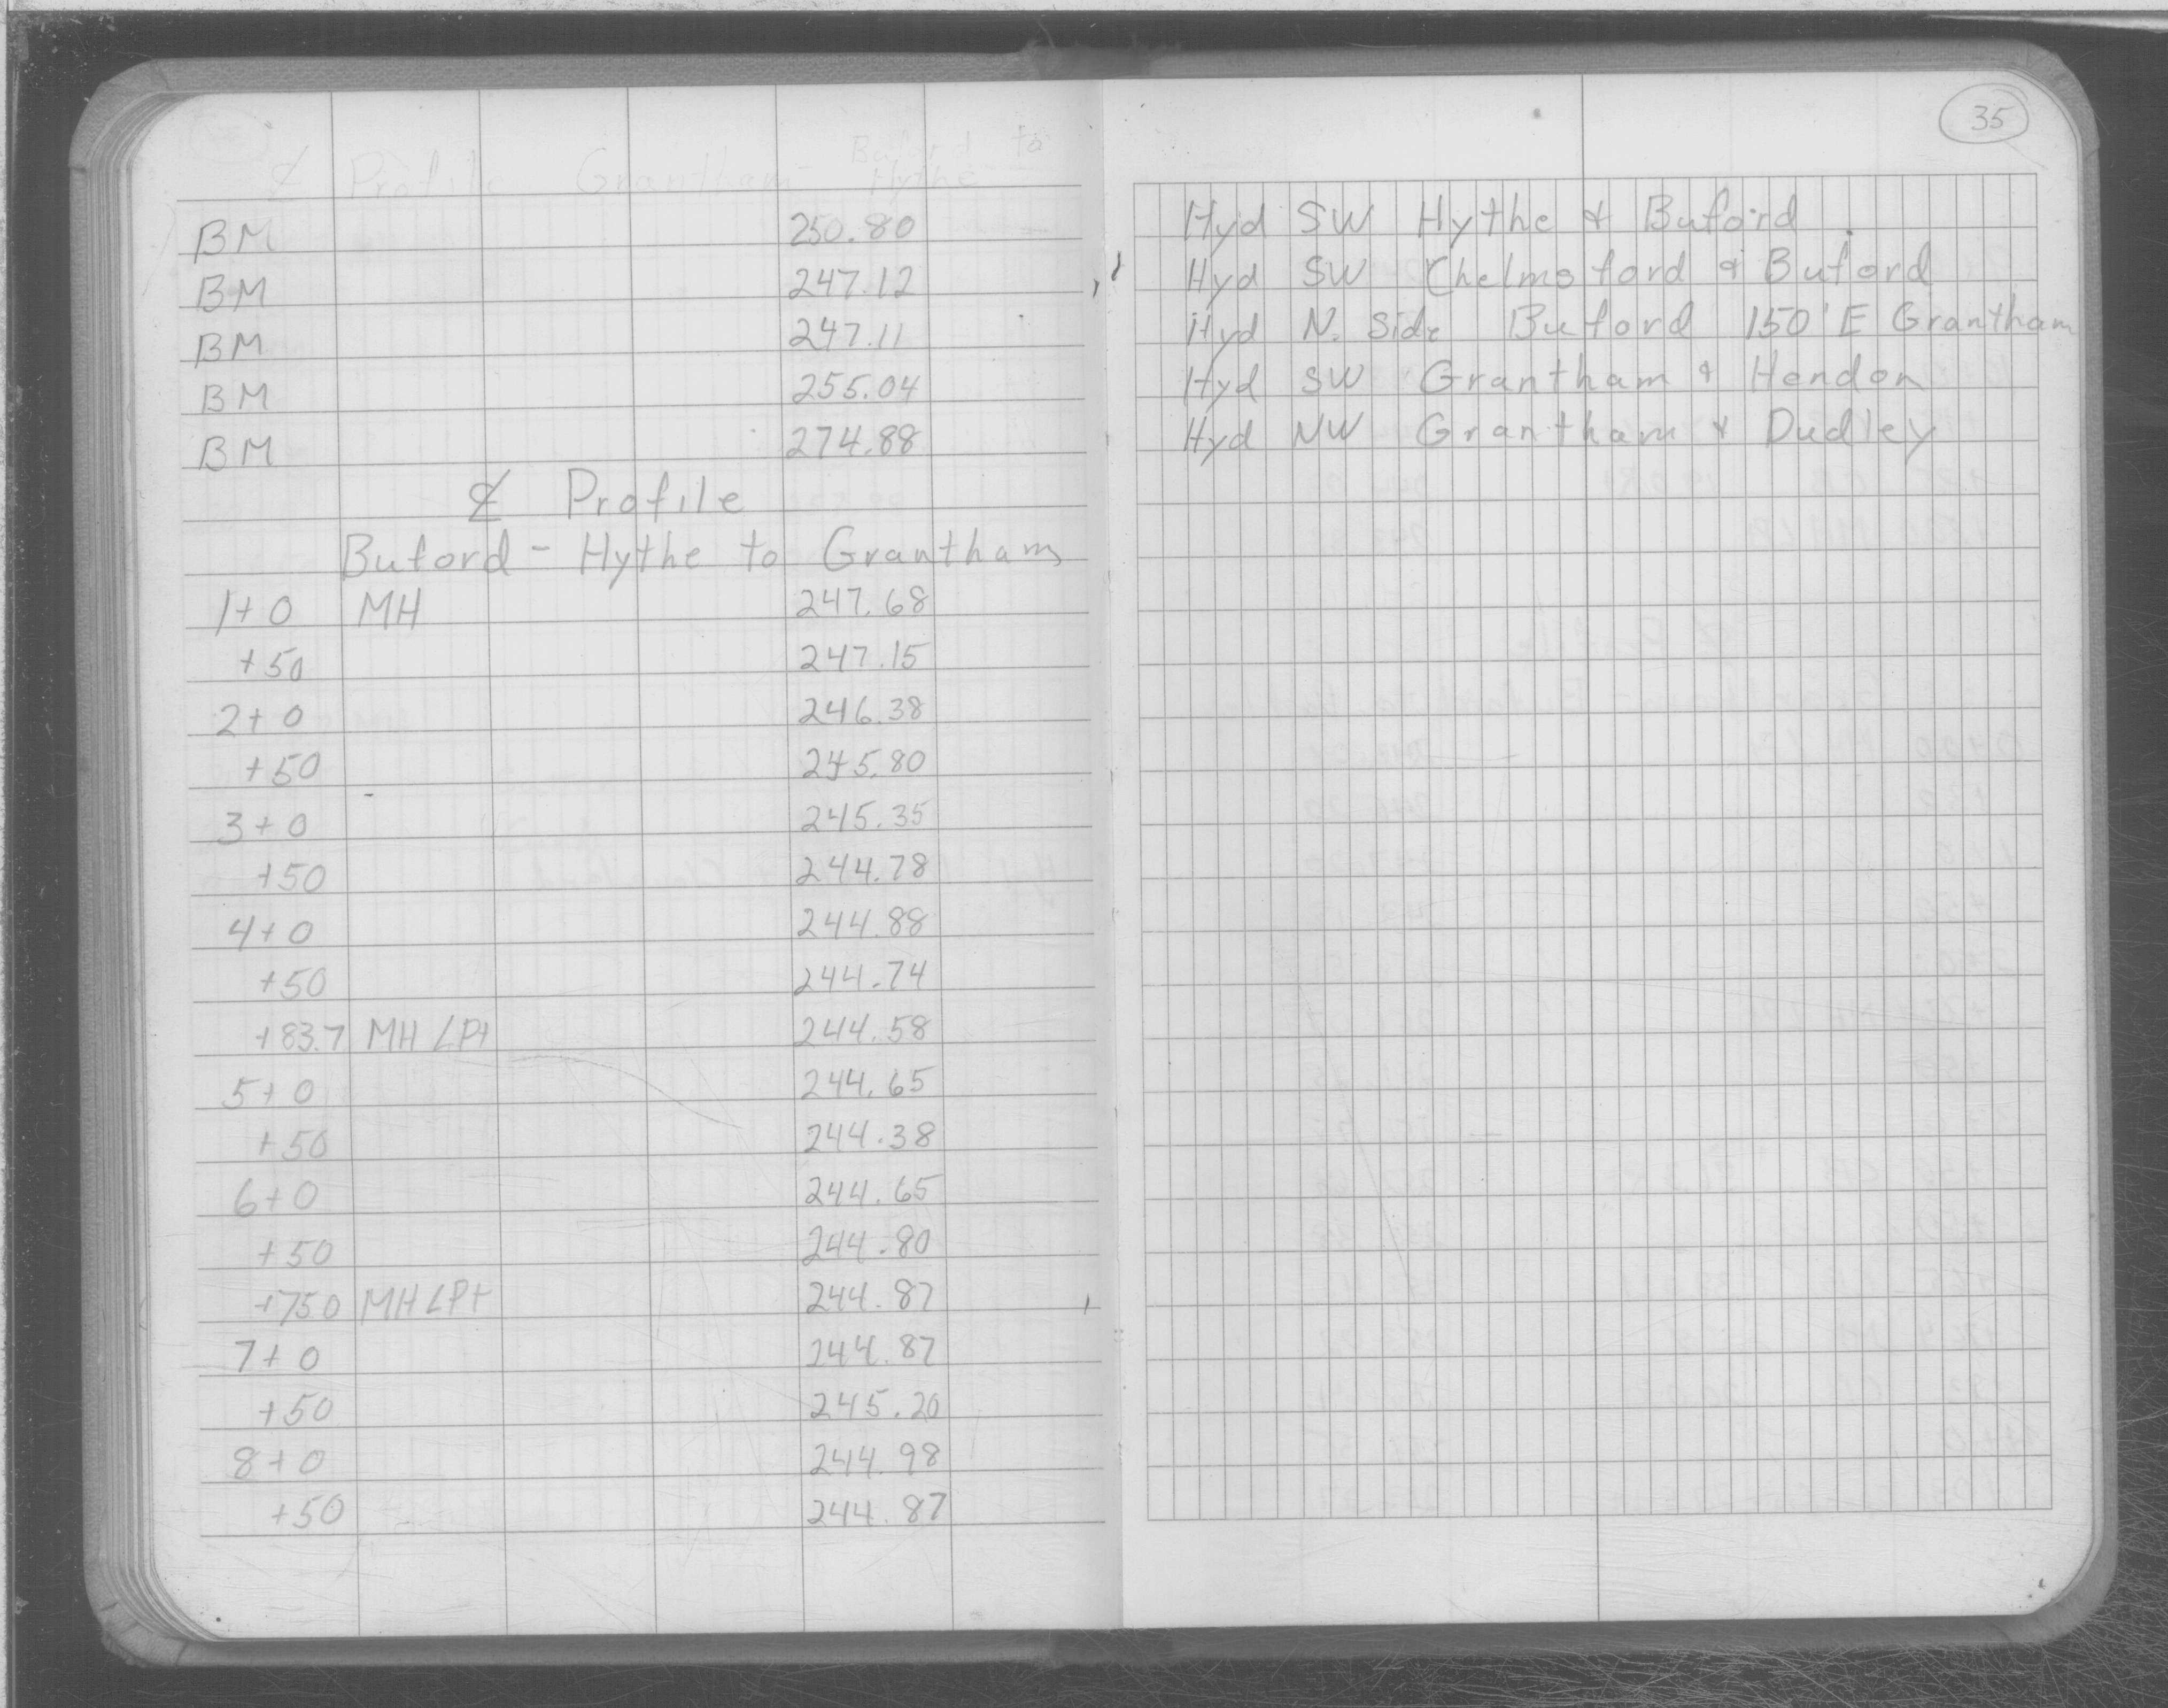 35
℄ Profile Grantham - Buford to Hythe
BM 250.80 Hyd SW Hythe & Buford
BM 247.12 Hyd SW Chelmsford & Buford
BM 247.11 Hyd N. Side Buford 150' E Grantham
BM 255.04 Hyd SW Grantham & Hendon
BM 274.88 Hyd NW Grantham & Dudley
℄ Profile
Buford - Hythe to Grantham
1+0 MH 247.68
+50 247.15
2+0 246.38
+50 245.80
3+0 245.35
+50 244.78
4+0 244.88
+50 244.74
+83.7 MH ∠Pt 244.58
5+0 244.65
+50 244.38
6+0 244.65
+50 244.80
+75.0 MH ∠Pt 244.87
7+0 244.87
+50 245.20
8+0 244.98
+50 244.87